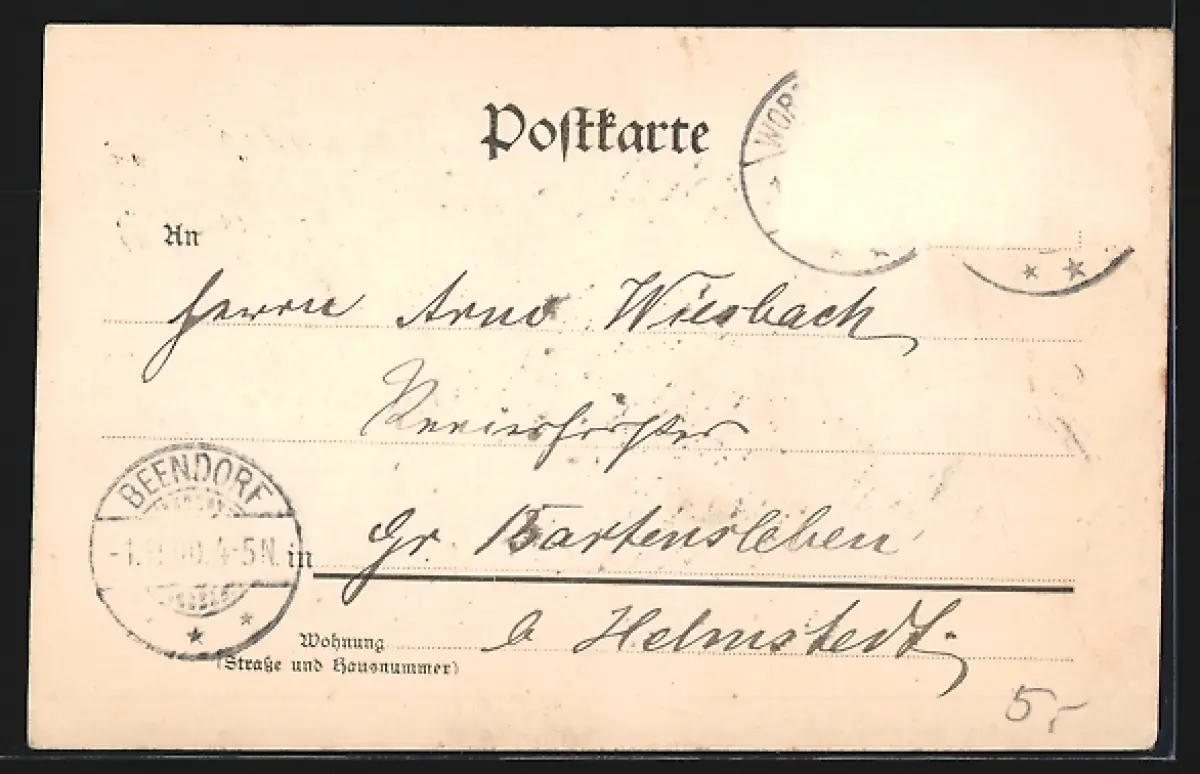 Postkarte
WOR
An
Herrn Arno Wiesbach
Revierförster
BEENDORF
-1.11.00.4-5N.
in Gr Bartensleben
b Helmstedt.
Wohnung
(Straße und Hausnummer)
5,-